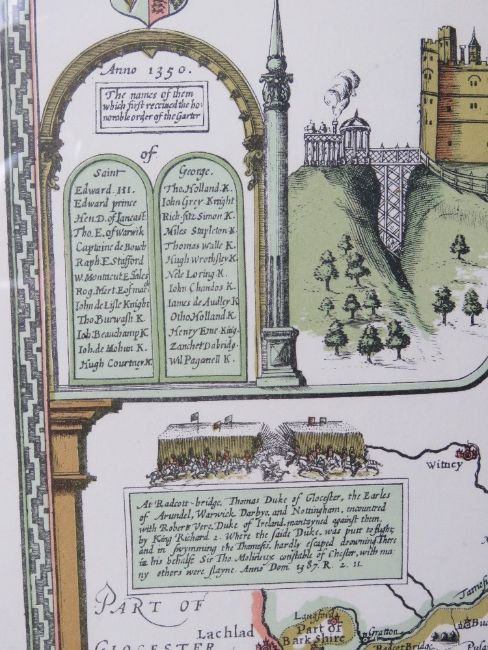 Anno 1350.
The names of them
which first received the ho-
norable order of the Garter
of
Saint
Edward III.
Edward prince
Hen D. of Lancast
Tho. E. of Warwik
Captaine de Bouch
Raph. E. Stafford
W. Montacut E. Sales
Rog. Mort. E. of mar
Iohn de Lisle Knight
Tho Burwash K.
Ioh Beauchamp K
Ioh. de Mohun K.
Hugh Courtney K
George.
Tho. Holland. K.
Iohn Grey Knight
Rich. fitz Simon K.
Miles Stapleton K.
Thomas Walle K.
Hugh Wrothsley K.
Nele Loring. K.
Iohn Chandos K.
Iames de Audley K.
Otho Holland K.
Henry Eme Knig.
Zanchet Dabridg.
Wil Paganell K.
At Radcott-bridge, Thomas Duke of Glocester, the Earles
of Arundel, Warwick, Darbye, and Nottingham, encountred
with Robert Vere, Duke of Ireland, mantayned against them,
by King Richard 2. Where the saide Duke, was put to flight,
and in swymming the Thamesis, hardly escaped drowning. There
in his behalfe Sir Tho Molineux constable of Chester, with ma
ny others were slayne. Anno Dom 1387. R. 2. 11.
Witney
PART OF
GLOCESTER
Lachlad
Langford
Part of
Bark shire
Gratton
Radcot Bridge